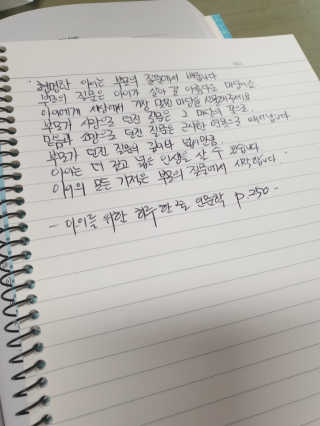 현명한 아이는 부모의 질문에서 배웁니다
부모의 질문은 아이가 살아 갈 아름다운 마당이고
아이에게 세상에서 가장 멋진 마당을 선물해주세요
부모가 사랑으로 던진 질문은 그 마당의 꽃으로
믿음과 소망으로 던진 질문은 근사한 연못으로
부모가 던진 질문의 깊이와 넓이만큼
아이는 더 깊고 넓은 인생을 살 수 있습니다
아이의 모든 기적은 부모의 질문에서 시작합니다
- 아이를 위한 하루 한 줄 인문학 P.250 -